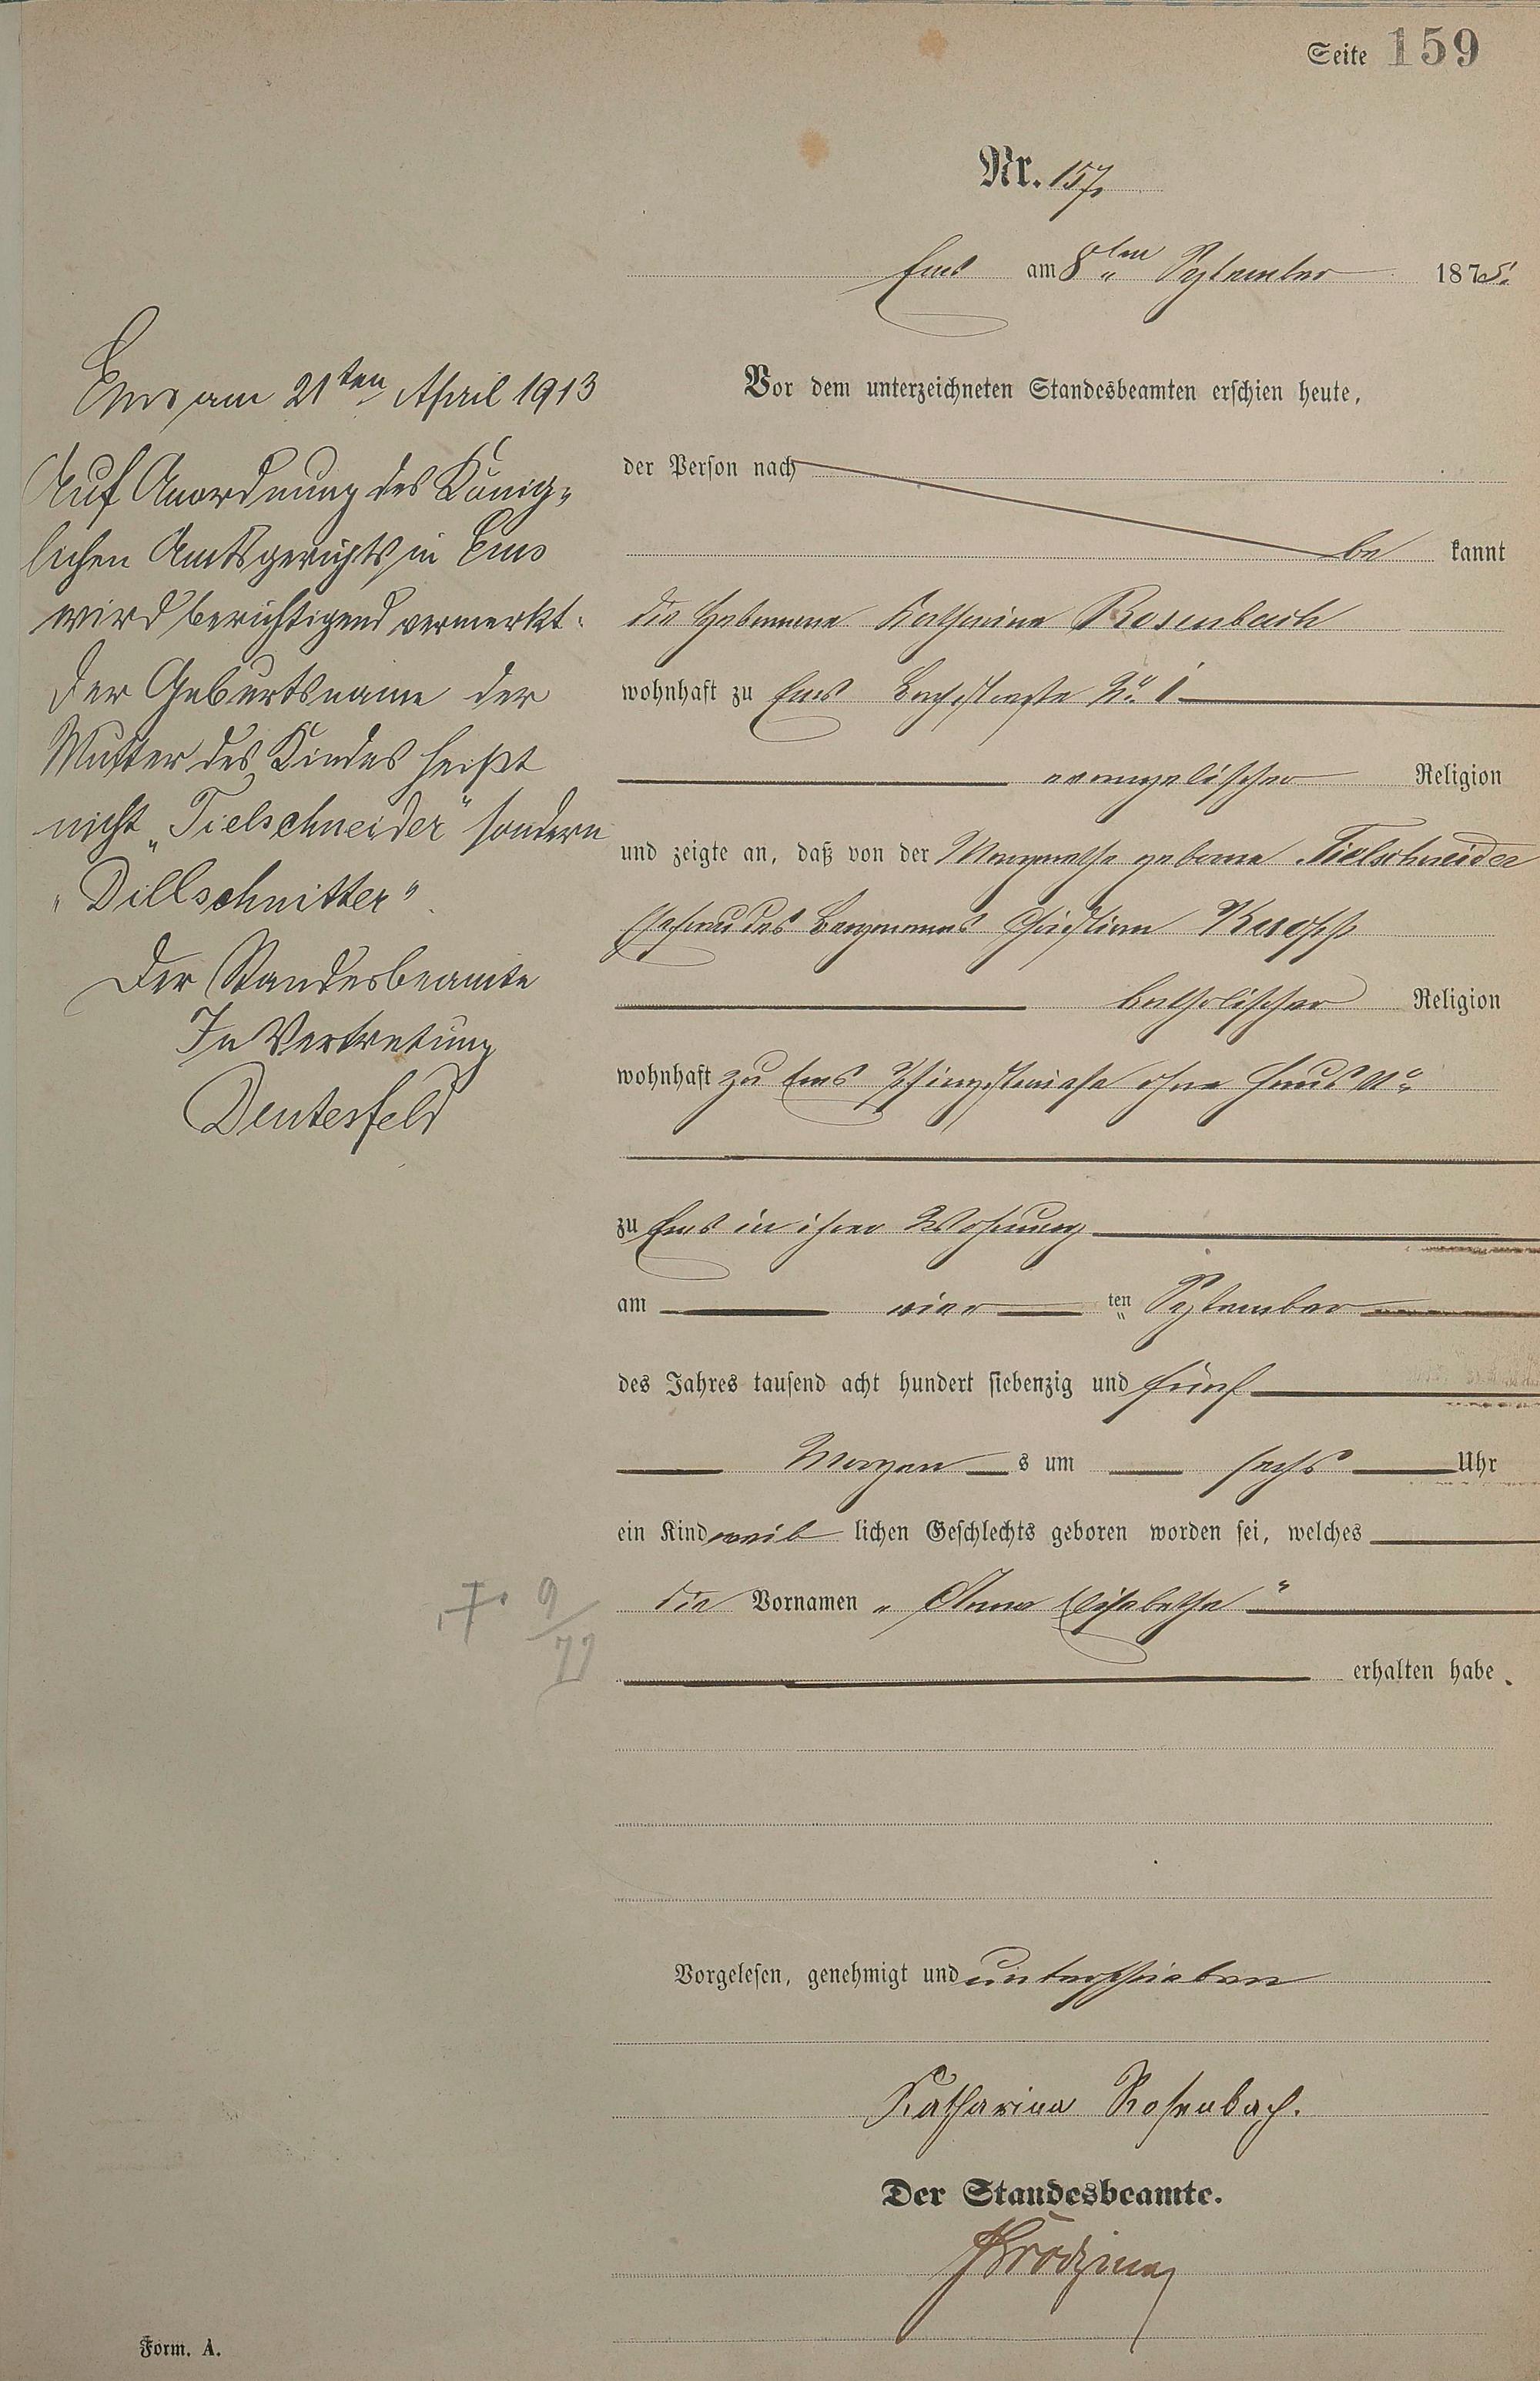 Seite 159
Nr. 157.
Ems am 8ten September 1875.
Vor dem unterzeichneten Standesbeamten erschien heute,
der Person nach
be kannt
die Hebamme Katharina Rosenbach
wohnhaft zu Ems Bachstraße No. 1
evangelischer Religion
und zeigte an, daß von der Margarethe geborne Tielschneider
Ehefrau des Bergmanns Christian
katholischer Religion
wohnhaft zu Ems ohne Haus No.
zu Ems in ihrer Wohnung
am vier ten September
des Jahres tausend acht hundert siebenzig und fünf
Morgen s um sechs Uhr
ein Kind weib lichen Geschlechts geboren worden sei, welches
die Vornamen „Anna Elisabetha"
erhalten habe.
Vorgelesen, genehmigt und unterschrieben
Katharina Rosenbach.
Der Standesbeamte.
Ems am 21ten April 1913
Auf Anordnung des König-
lichen Amtsgerichts in Ems
wird berichtigend vermerkt:
Der Geburtsname der
Mutter des Kindes heißt
nicht „Tielschneider" sondern
„Dillschnitter".
Der Standesbeamte
In Vertretung
Form. A.